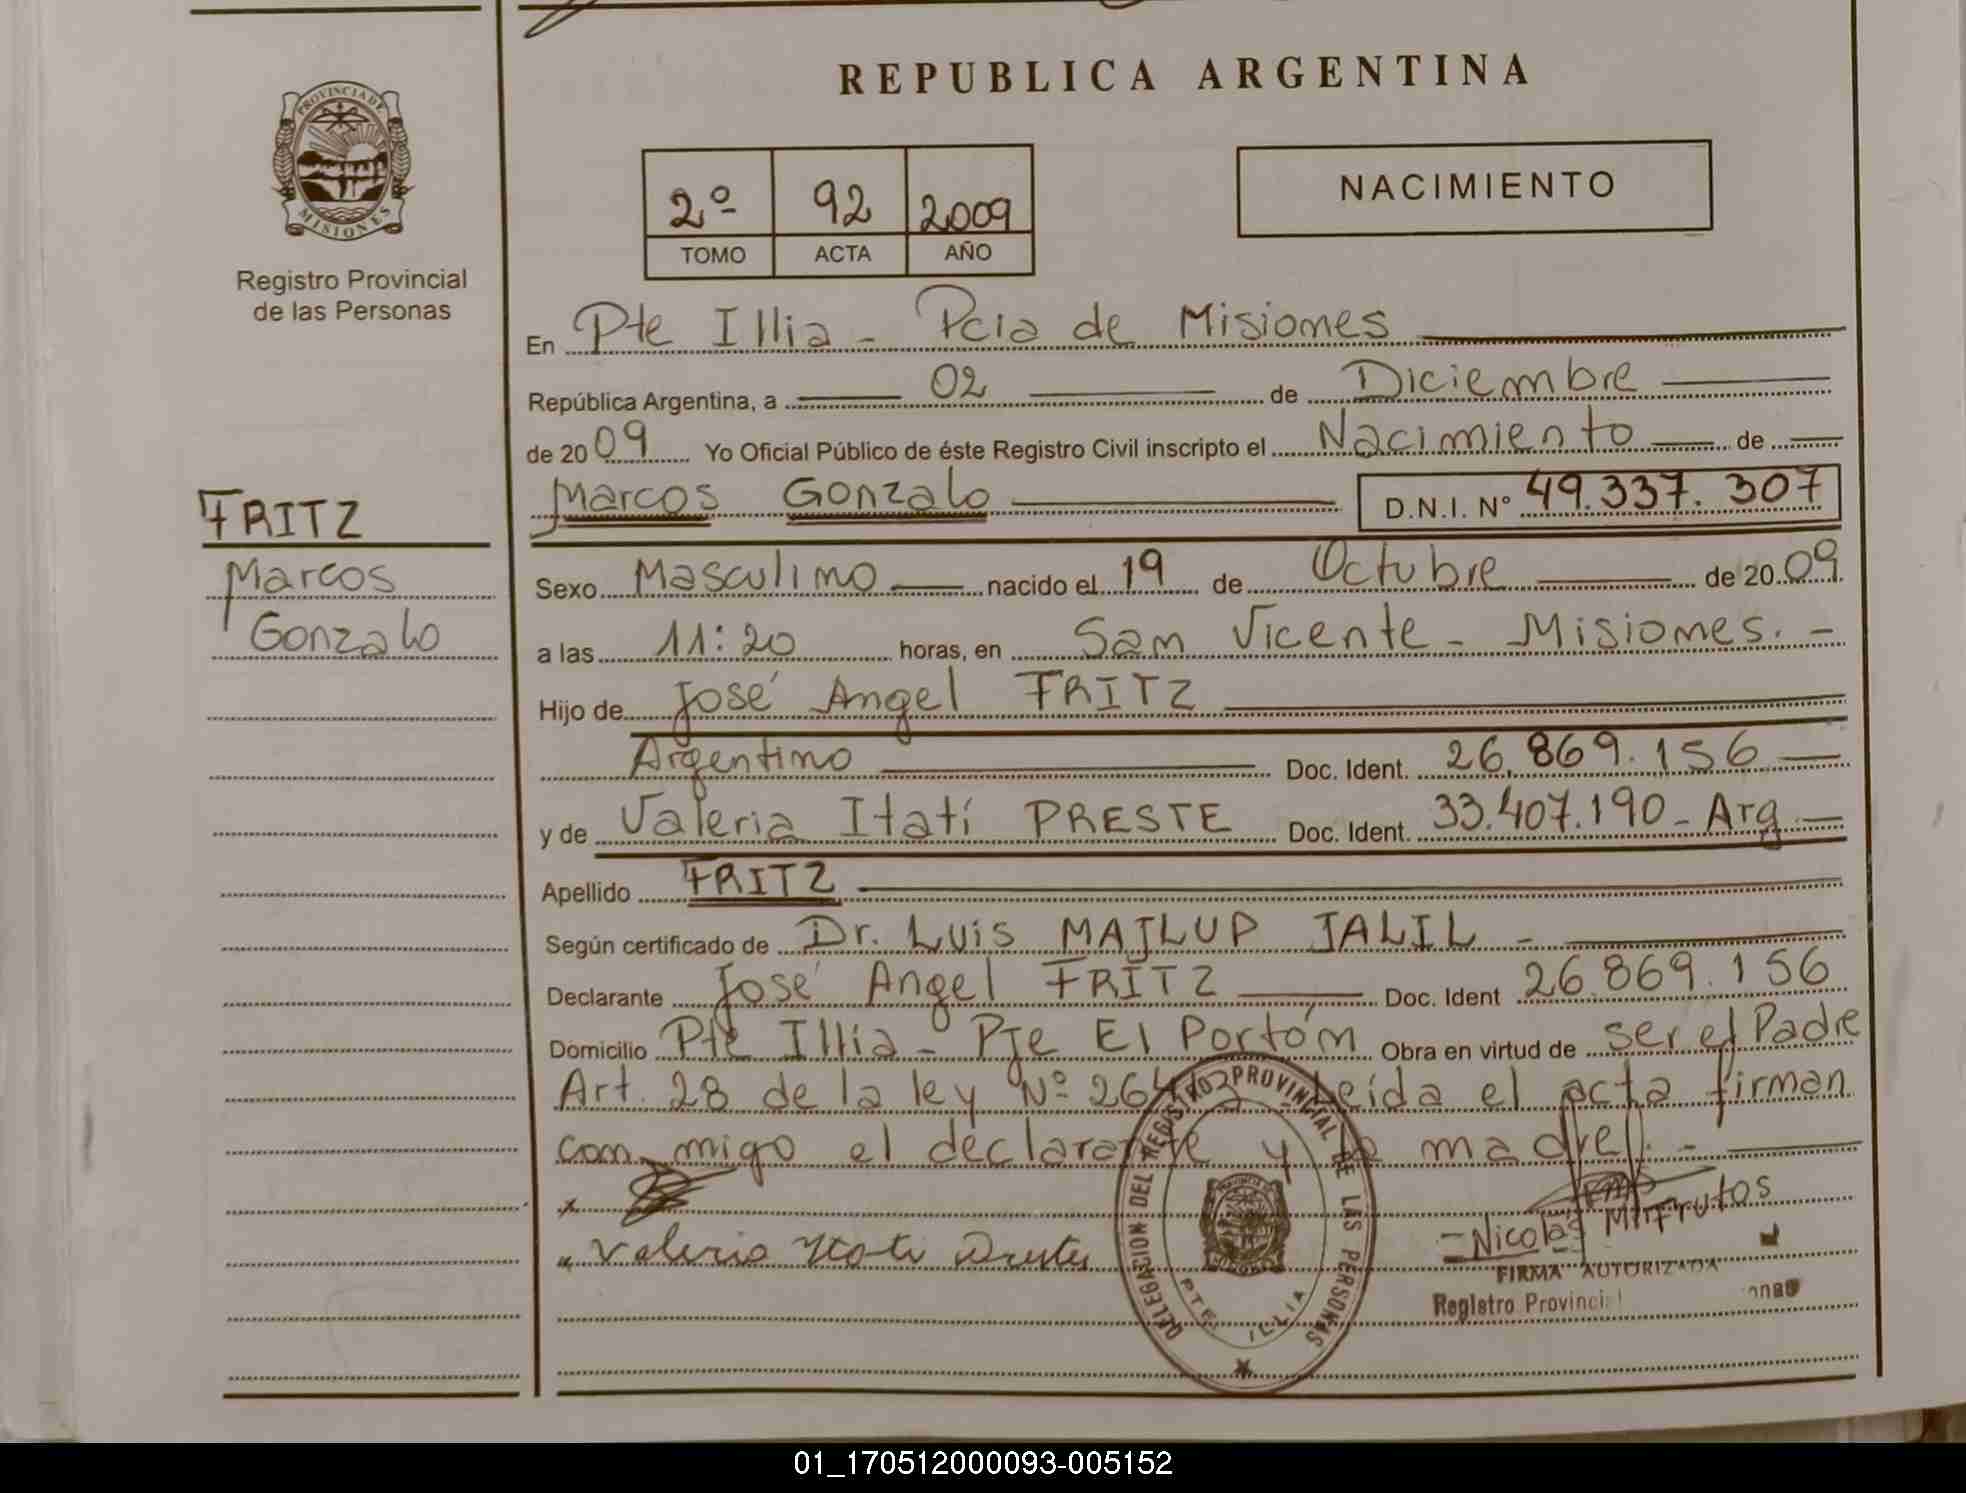 REPUBLICA ARGENTINA
PROVINCIA DE MISIONES
Registro Provincial
de las Personas
2º 92 2009
TOMO ACTA AÑO
NACIMIENTO
En Pte Illia - Pcia de Misiones
República Argentina, a 02 de Diciembre
de 2009 Yo Oficial Público de éste Registro Civil inscripto el Nacimiento de
Marcos Gonzalo D.N.I. Nº 49.337.307
FRITZ
Marcos
Gonzalo
Sexo Masculino nacido el 19 de Octubre de 2009
a las 11:20 horas, en San Vicente - Misiones. -
Hijo de José Angel FRITZ
Argentino Doc. Ident. 26.869.156
y de Valeria Itatí PRESTE Doc. Ident. 33.407.190 - Arg
Apellido FRITZ
Según certificado de Dr. Luis MAJLUP JALIL -
Declarante José Angel FRITZ Doc. Ident 26.869.156
Domicilio Pte Illia - Pje El Portón Obra en virtud de ser el Padre
Art. 28 de la ley Nº 26413 Leída el acta firman
con migo el declarante y la madre. -
Valeria Itati Preste
DELEGACION DEL REGISTRO PROVINCIAL DE LAS PERSONAS
PTE. ILLIA
Nicolás M. Frutos
FIRMA AUTORIZADA
Registro Provincial
01_170512000093-005152